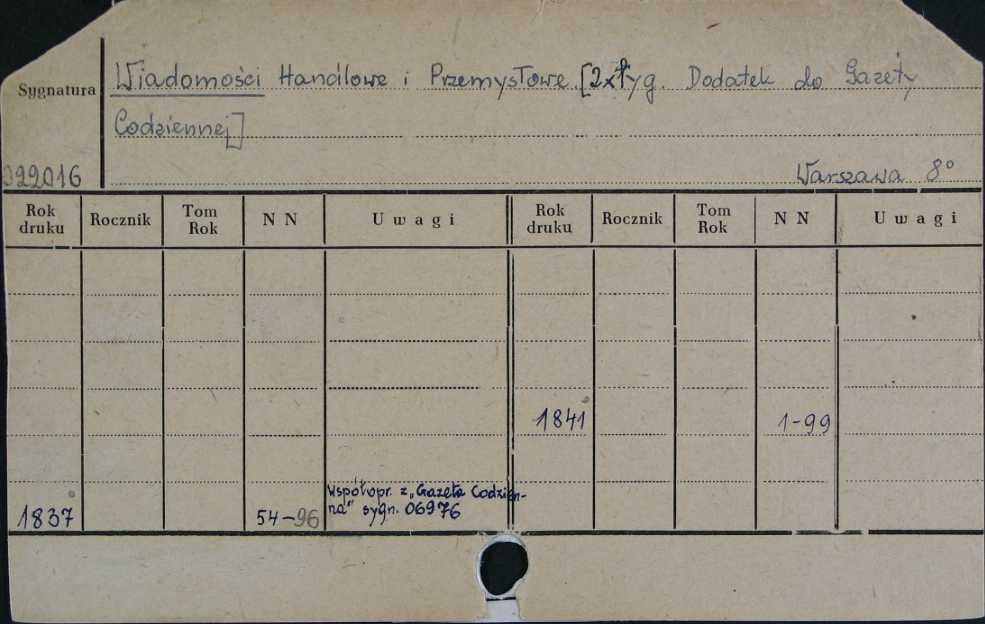 Sygnatura
Wiadomości Handlowe i Przemysłowe. [2x tyg. Dodatek do Gazety
Codziennej]
022016
Warszawa 8°
Rok druku Rocznik Tom Rok NN Uwagi Rok druku Rocznik Tom Rok NN Uwagi
1841 1-99
Współopr. z „Gazeta Codzien-
na" sygn. 06976
1837 54-96